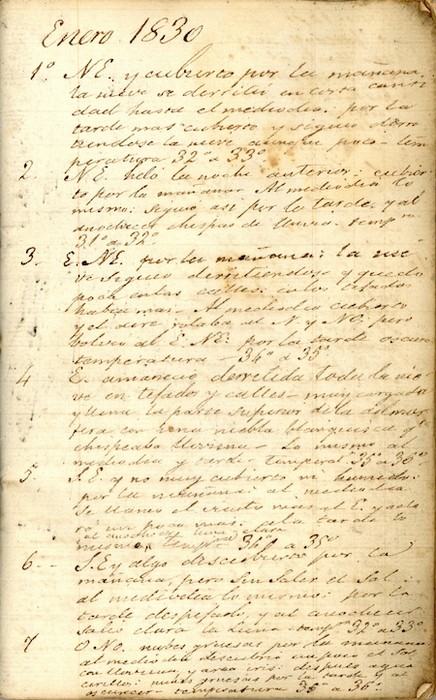 Enero 1830
1º NE. y cubierto por la mañana
la nieve se derritió en corta canti
dad hasta el mediodia: por la
tarde mas cubierto y siguió derri
tiendose la nieve aunque poco - tem
peratura 32º a 33º
2. NE. la noche anterior: cubier
to por la mañana. Al mediodia lo
mismo: siguió asi por la tarde, y al
anochecer chispas de lluvia. temp.ra
31º a 32º
3. E. NE. por la mañana: la nie
ve siguió derritiendose y quedó
poca en las calles: en los tejados
habia mas - Al mediodia cubierto
y el aire rolaba al N. y NO. pero
volvió al E. NE. por la tarde oscuro
temperatura - 34º a 35º
4 E. amaneció derretida toda la nie
ve en tejados y calles - muy cargada
y llena la parte superior de la atmos
fera con una niebla blanquisca q.e
chispeaba llovizna - Lo mismo al
mediodia y tarde - temperat.ra 35º a 36º
5 S.E. y no muy cubierto ni humedo
por la mañana: al mediodia
se llamó el viento mas al E. y aclo
ró un poco mas. a la tarde lo
al anochecer luna clara
mismo temp.ra 34º a 35º
6 - S.E y algo descubierto por la
mañana, pero sin salir el Sol:
al mediodia lo mismo: por la
tarde despejado, y al anochecer
salió clara la Luna temp.ra 32º a 33º
7 O NO. nubes gruesas por la mañana
al mediodia descubierto un poco el Sol,
con lluvia y arco iris: despues agua
nubes gruesas por la tarde y al
oscurecer - temperatura 35º a 36º